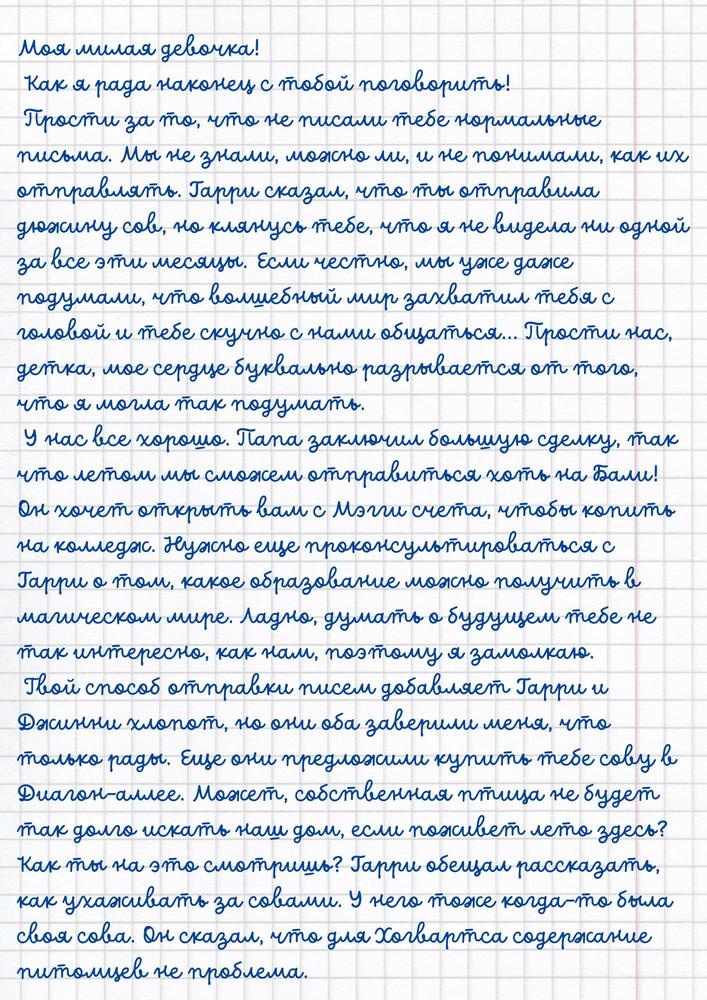 Моя милая девочка!
Как я рада наконец с тобой поговорить!
Прости за то, что не писали тебе нормальные
письма. Мы не знали, можно ли, и не понимали, как их
отправлять. Гарри сказал, что ты отправила
дюжину сов, но клянусь тебе, что я не видела ни одной
за все эти месяцы. Если честно, мы уже даже
подумали, что волшебный мир захватил тебя с
головой и тебе скучно с нами общаться... Прости нас,
детка, мое сердце буквально разрывается от того,
что я могла так подумать.
У нас все хорошо. Папа заключил большую сделку, так
что летом мы сможем отправиться хоть на Бали!
Он хочет открыть вам с Мэгги счета, чтобы копить
на колледж. Нужно еще проконсультироваться с
Гарри о том, какое образование можно получить в
магическом мире. Ладно, думать о будущем тебе не
так интересно, как нам, поэтому я замолкаю.
Твой способ отправки писем добавляет Гарри и
Джинни хлопот, но они оба заверили меня, что
только рады. Еще они предложили купить тебе сову в
Диагон-аллее. Может, собственная птица не будет
так долго искать наш дом, если поживет лето здесь?
Как ты на это смотришь? Гарри обещал рассказать,
как ухаживать за совами. У него тоже когда-то была
своя сова. Он сказал, что для Хогвартса содержание
питомцев не проблема.